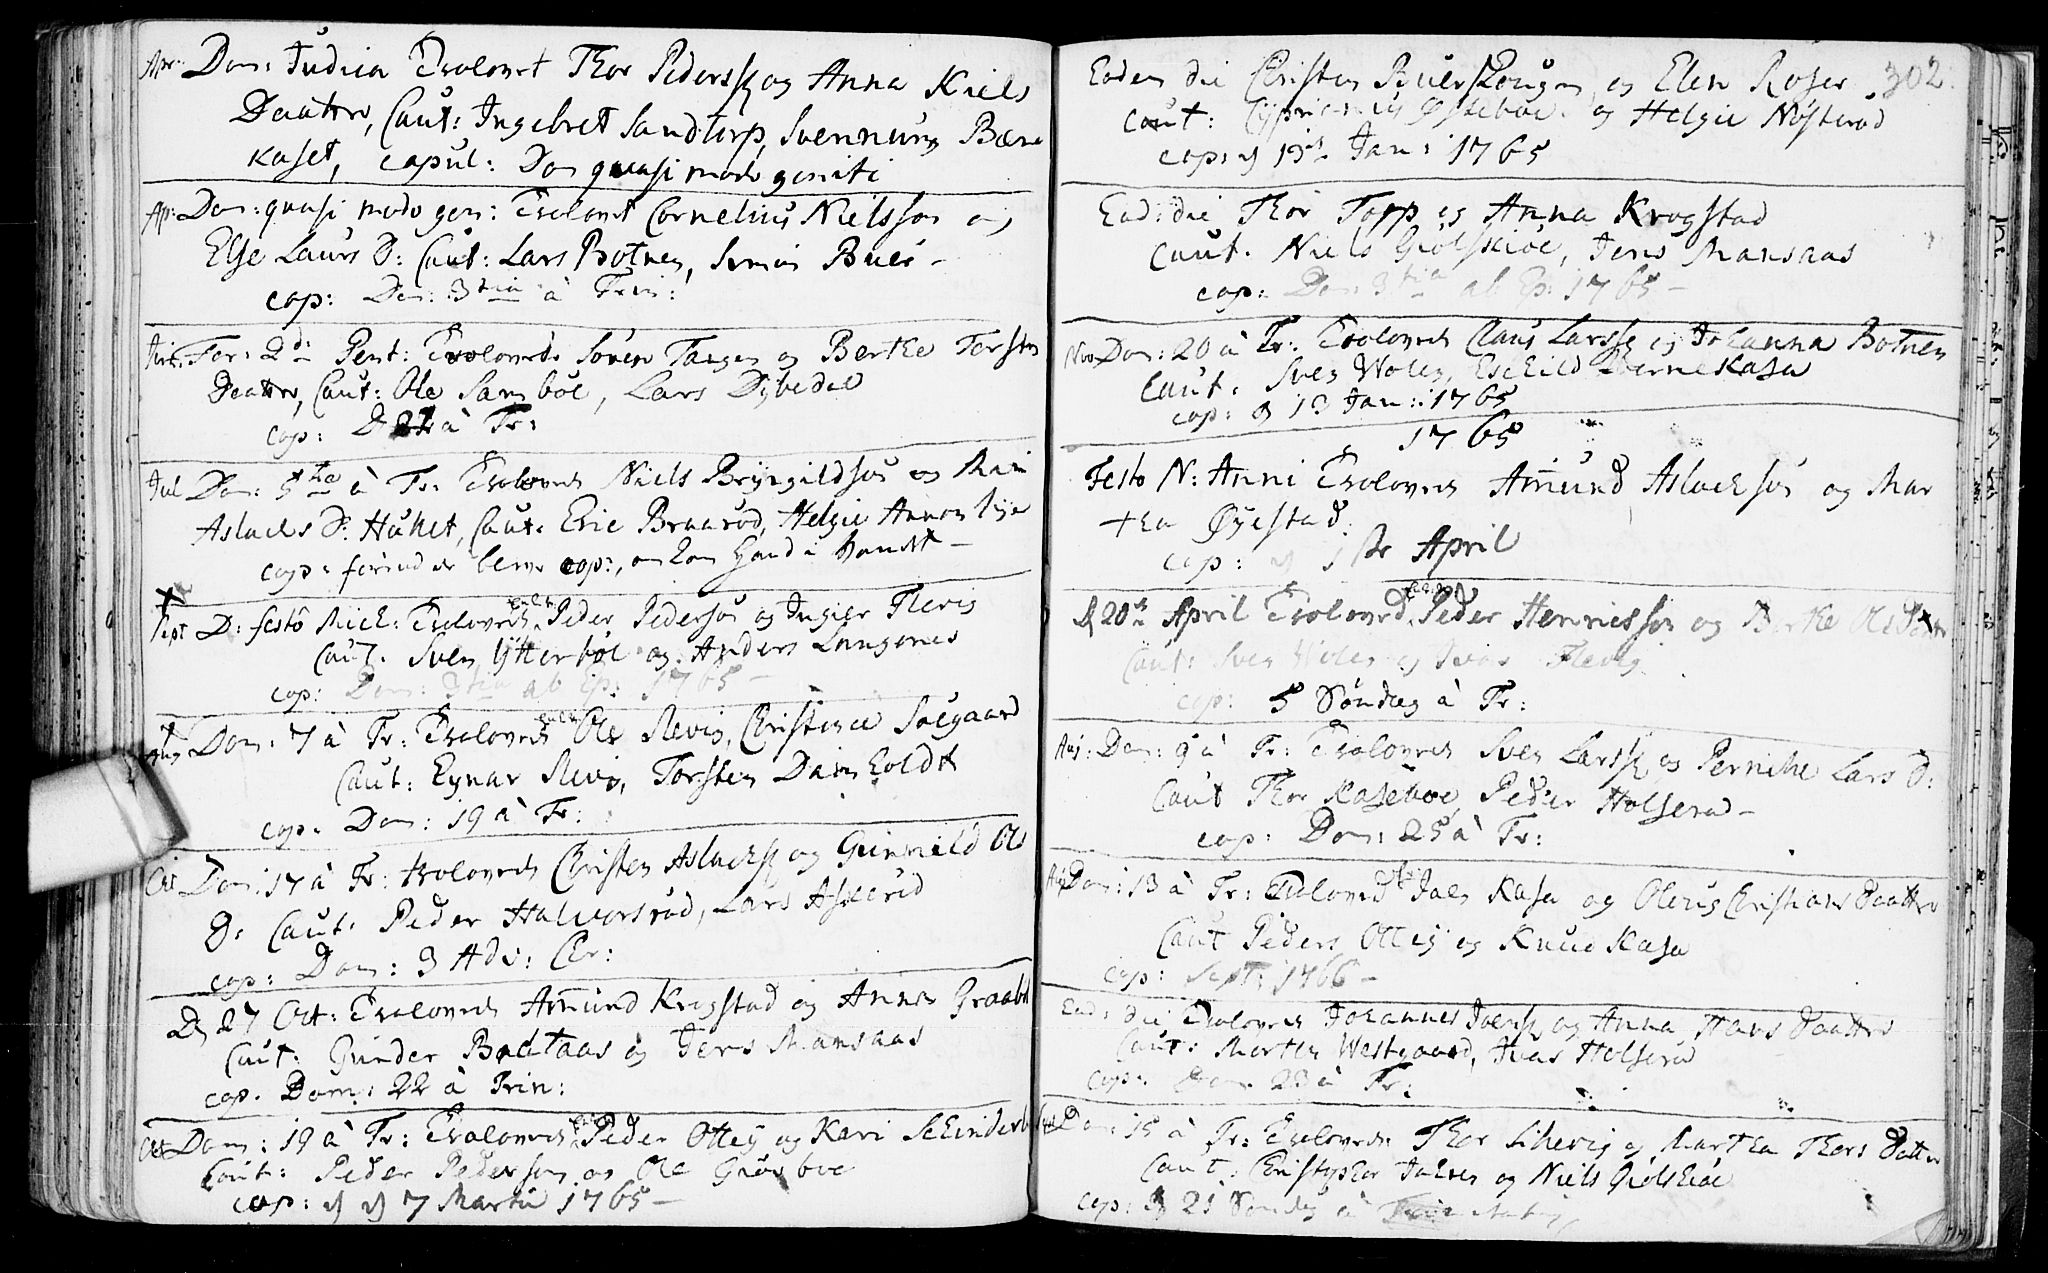 Apr: Dom: Judica Trolovet Thor Pederss: og Anna Niels
Daatter, Caut: Ingebret Sandtorp, Svennung Bærre
kaset, copul: Dom quasi modo geniti
Apr: Dom: quasi modo gen: Trolovet Cornelius Nielsson og
Else Laurs D: Caut: Lars Botnen, Simon Buer -
cop: Dom: 3tia à Trin:
Fer: 2di Pent: Trolovede Sören Tangen og Berthe Torsten
Daatter, Caut: Ole Samböe, Lars Dybedal
cop: D 21 à Tr:
Jul Dom: 5te à Tr: Trolovede Niels Bryngildsön og Mari
Aslachs D: Huket, Caut: Eric Braaröd, Helgie Annonbye
cop: förend de bleve cop:, om kom Hand i Vandet -
Sept D: festô Mich: Trolovede Peder Pedersön og Ingier Flevig
Caut. Sven Ytterböe og Anders Langenes
cop: Dom: 3tia ab Ep: 1765 -
Aug Dom: 7 à Tr: Trolovede Ole Revig, Christence Soegaard
Caut: Eynar Revig, Torsten Damholdt
cop. Dom: 19 à Tr:
Oct Dom: 17 à Tr: trolovede Christen Aslachss: og Gunnild Ols
D: Caut: Peder Halvorsröd, Lars Askeröd
cop: Dom: 3 Adv: Chr:
D 27 Oct: Trolovede Amund Krogstad og Anne Graabe
Caut: Gunder Badtaas og Jens Mansaas
cop. Dom: 22 à Trin:
Oct Dom: 19 à Tr: Trolovede Peder Ottey og Kari Schinderb
Caut: Peder Pedersen og Ole Grösboe
cop: d 7 Martii 1765 -
302.
Eadem die Christen Buerskougen og Elen Roser
caut: Cyprianus Östeböe og Helgie Nösteröd
cop: d 13de Jan: 1765
Ead: die Thor Topp og Anna Krogstad
caut. Niels Giölskiöe, Jens Mansaas
cop: Dom 3tia ab Ep: 1765 -
Nov Dom: 20 à Tr: Trolovede Claus Larss: og Johanna Botnen
Caut: Sven Wolen, Eschild Bernekasa
cop: d 13 Jan: 1765
1765
Festo N: Anni Trolovede Amund Aslachsön og Mar
tha Öyestad.
cop: d 1ste April
d 20de April Trolovede Peder Henricssön og Berthe Ols Datter
Caut: Sven Wolen og Ivar Flevig
cop: 5 Söndag à Tr:
Aug: Dom: 9 à Tr: Trolovede Sven Larss: og Pernille Lars D:
Caut Thor Kaseboe, Peder Holseröd -
cop: Dom: 25 à Tr:
Aug Dom: 13 à Tr: Trolovede Joen Kasa og Oleug Christians Daatter
Caut Peder Ottey og Knud Kasa
cop: Sept: 1766 -
Ead: die Trolovede Johannes Joenss: og Anna Hans Daatter
Caut: Morten Westgaard, Ivar Holseröd
cop. Dom. 23 à Tr:
Sept Dom: 15 à Tr: Trolovede Thor Lihevig og Martha Thors Datter
Caut: Christopher Jahren og Niels Giölskiöe
cop: d 21 Söndag à Trin